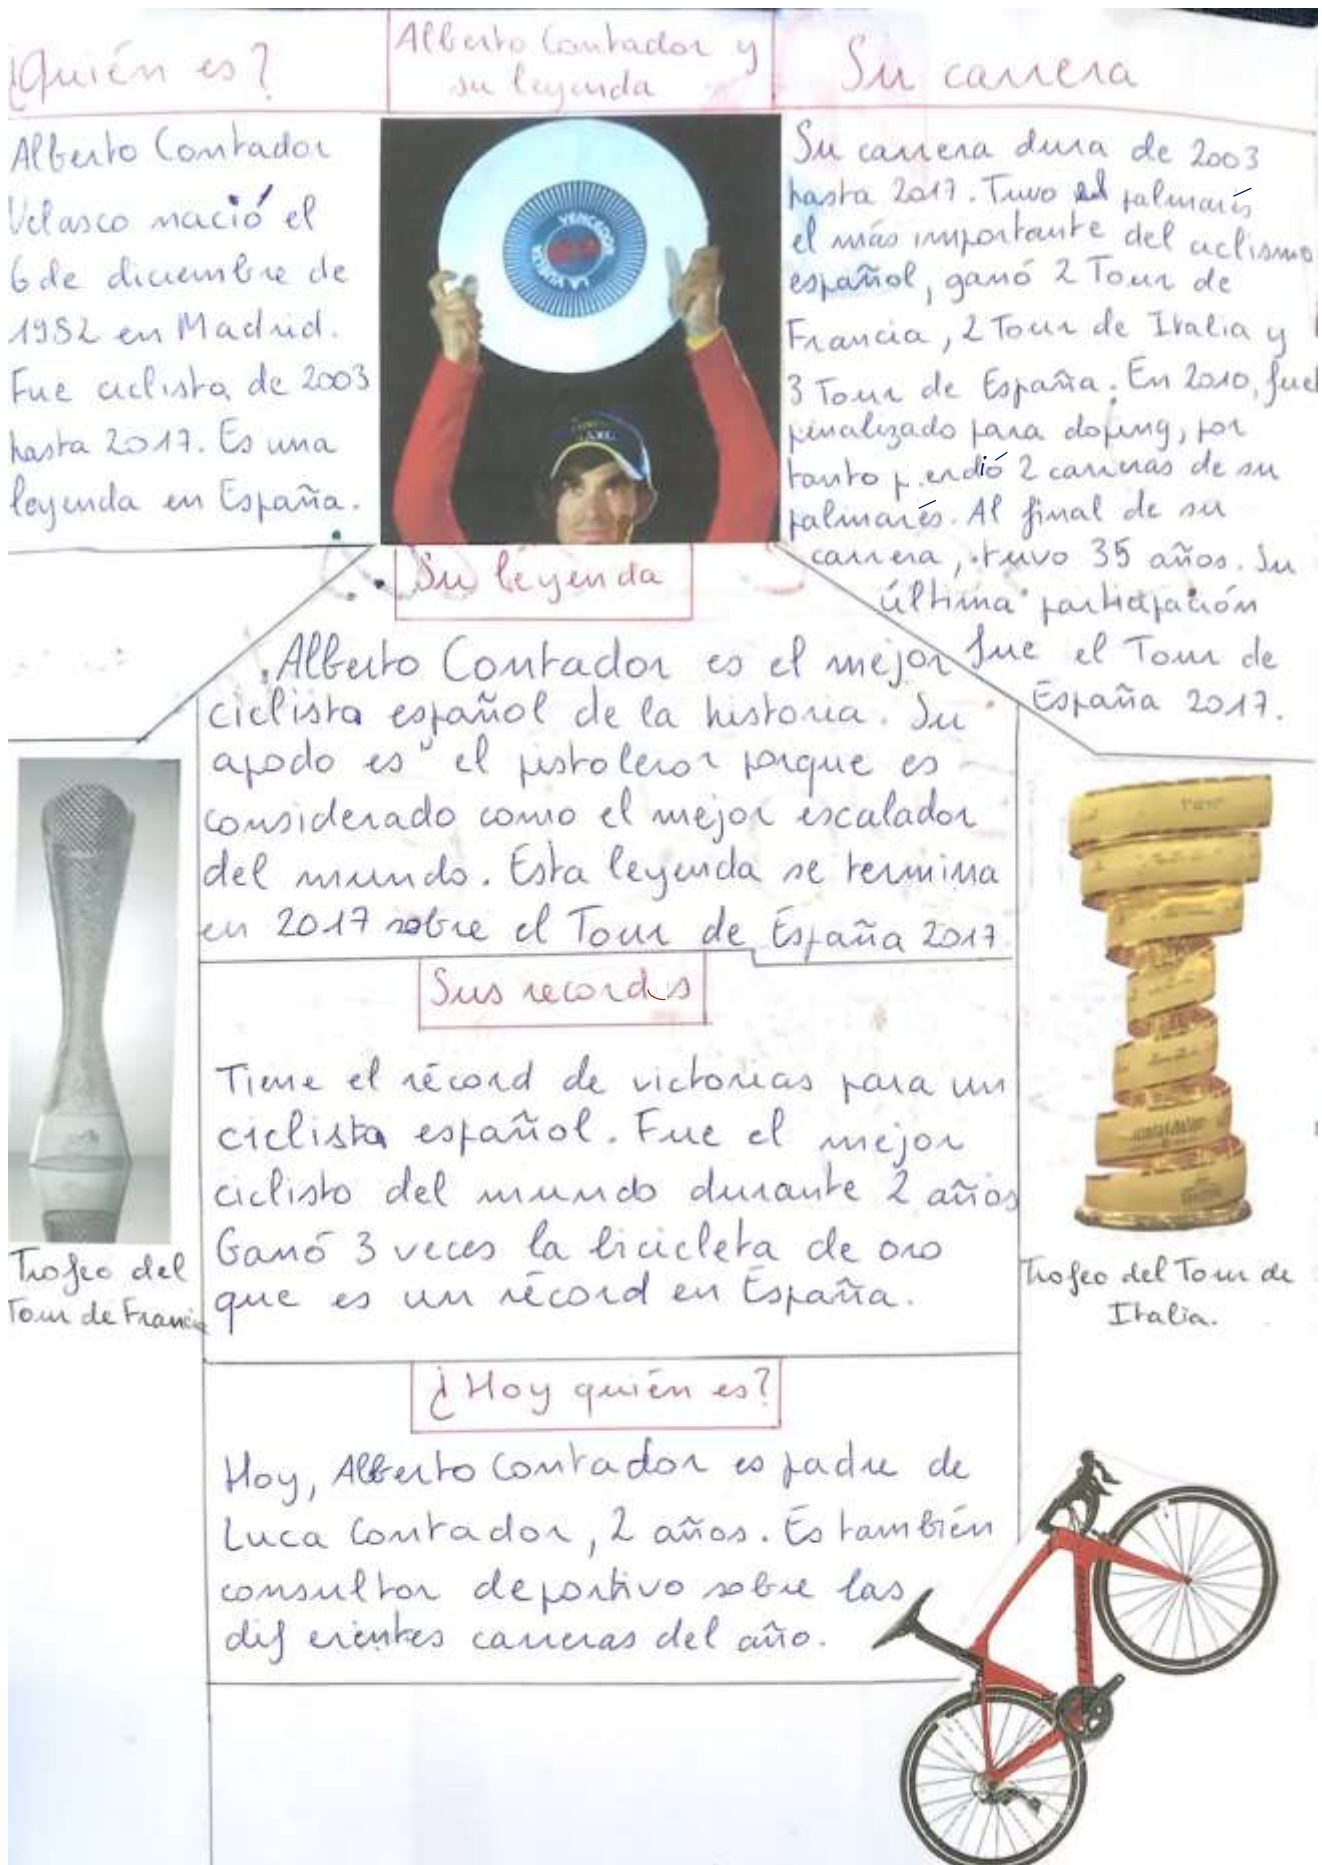 ¿Quién es?
Alberto Contador
Velasco nació el
6 de diciembre de
1982 en Madrid.
Fue ciclista de 2003
hasta 2017. Es una
leyenda en España.
Alberto Contador y
su leyenda
VENCEDOR
LA VUELTA
Su carrera
Su carrera dura de 2003
hasta 2017. Tuvo el palmarés
el más importante del ciclismo
español, ganó 2 Tour de
Francia, 2 Tour de Italia y
3 Tour de España. En 2010, fue
penalizado para doping, por
tanto perdió 2 carreras de su
palmarés. Al final de su
carrera, tuvo 35 años. Su
última participación
fue el Tour de
España 2017.
Su leyenda
Alberto Contador es el mejor
ciclista español de la historia. Su
apodo es "el pistolero" porque es
considerado como el mejor escalador
del mundo. Esta leyenda se termina
en 2017 sobre el Tour de España 2017.
Sus records
Tiene el récord de victorias para un
ciclista español. Fue el mejor
ciclisto del mundo durante 2 años
Ganó 3 veces la bicicleta de oro
que es un récord en España.
Trofeo del
Tour de Francia
Trofeo del Tour de
Italia.
¿Hoy quién es?
Hoy, Alberto Contador es padre de
Luca Contador, 2 años. Es también
consultor deportivo sobre las
diferentes carreras del año.